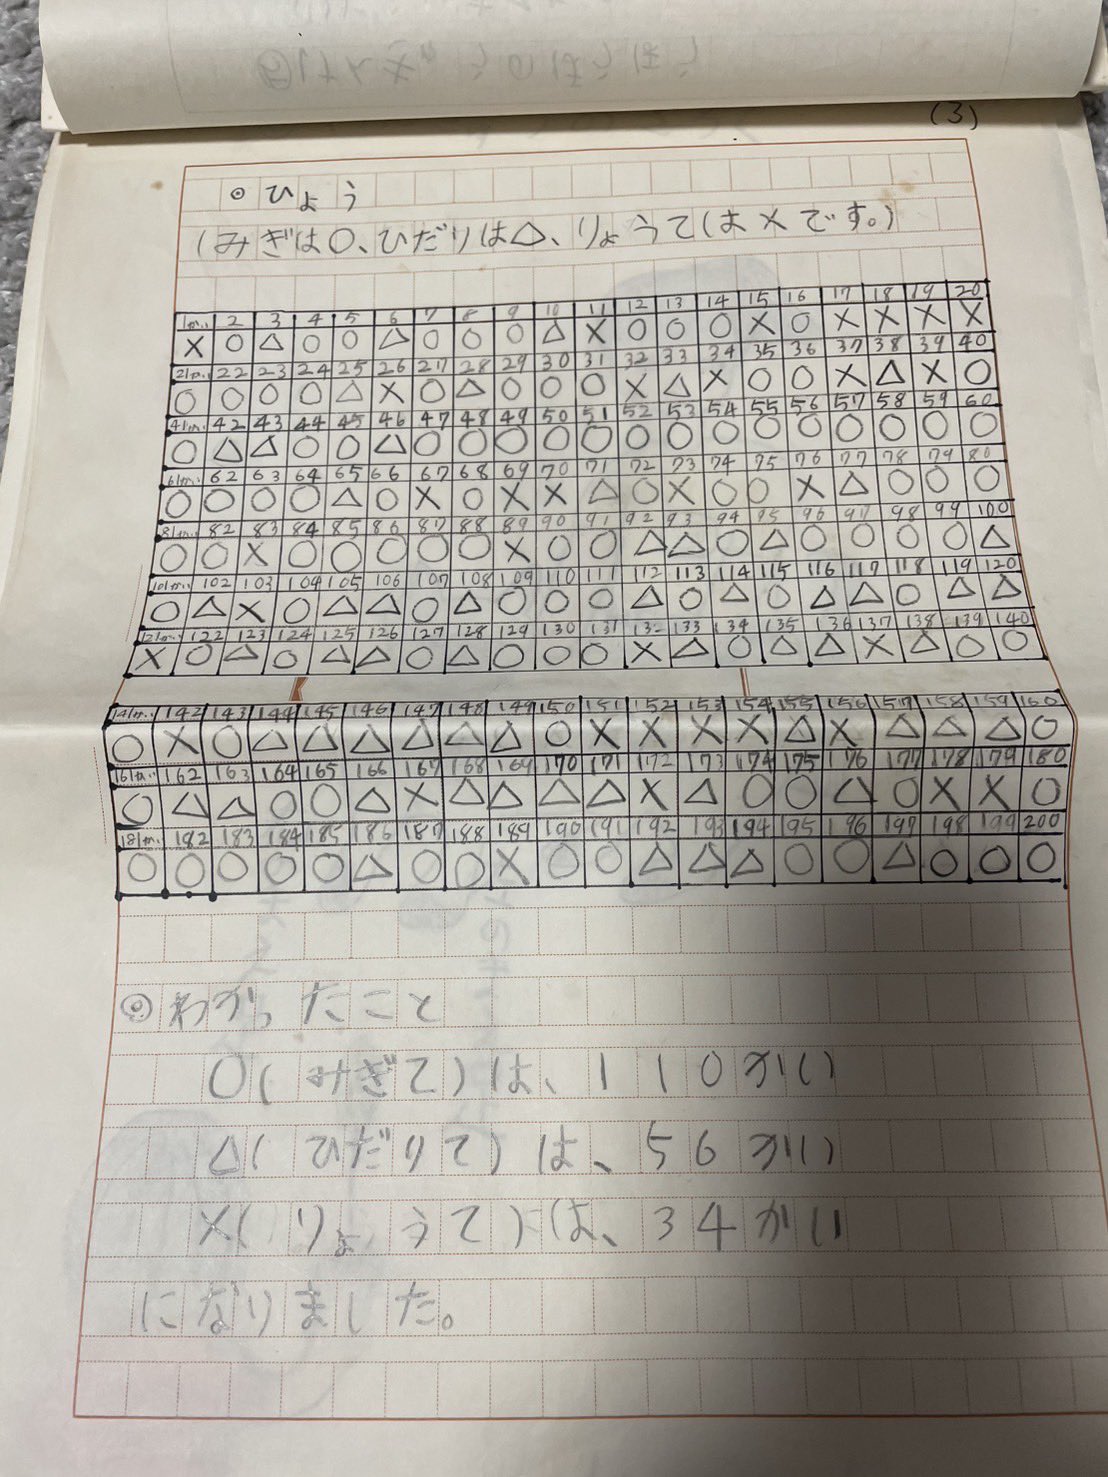 (3)
◎ひょう
(みぎは○、ひだりは△、りょうては×です。)
1かい 2 3 4 5 6 7 8 9 10 11 12 13 14 15 16 17 18 19 20
× ○ △ ○ ○ △ ○ ○ ○ △ × ○ ○ ○ × ○ × × × ×
21かい 22 23 24 25 26 27 28 29 30 31 32 33 34 35 36 37 38 39 40
○ ○ ○ ○ △ × ○ △ ○ ○ ○ × △ × ○ ○ × △ × ○
41かい 42 43 44 45 46 47 48 49 50 51 52 53 54 55 56 57 58 59 60
○ △ △ ○ ○ △ ○ ○ ○ ○ ○ ○ ○ ○ ○ ○ ○ ○ ○ ○
61かい 62 63 64 65 66 67 68 69 70 71 72 73 74 75 76 77 78 79 80
○ ○ ○ ○ △ ○ × ○ × × △ ○ × ○ ○ × △ ○ ○ ○
81かい 82 83 84 85 86 87 88 89 90 91 92 93 94 95 96 97 98 99 100
○ ○ × ○ ○ ○ ○ ○ × ○ ○ △ △ ○ △ ○ ○ ○ ○ △
101かい 102 103 104 105 106 107 108 109 110 111 112 113 114 115 116 117 118 119 120
○ △ × ○ △ △ ○ △ ○ ○ ○ △ ○ △ ○ △ △ ○ △ △
121かい 122 123 124 125 126 127 128 129 130 131 132 133 134 135 136 137 138 139 140
× ○ △ ○ △ △ ○ △ ○ ○ ○ × △ ○ △ △ × △ ○ ○
141かい 142 143 144 145 146 147 148 149 150 151 152 153 154 155 156 157 158 159 160
○ × ○ △ △ △ △ △ △ ○ × × × × △ × △ △ △ ○
161かい 162 163 164 165 166 167 168 169 170 171 172 173 174 175 176 177 178 179 180
○ △ △ ○ ○ △ × △ △ △ △ × △ ○ ○ △ ○ × × ○
181かい 182 183 184 185 186 187 188 189 190 191 192 193 194 195 196 197 198 199 200
○ ○ ○ ○ ○ △ ○ ○ × ○ ○ △ △ △ ○ ○ △ ○ ○ ○
◎わかったこと
○(みぎて)は、110かい
△(ひだりて)は、56かい
×(りょうて)は、34かい
になりました。